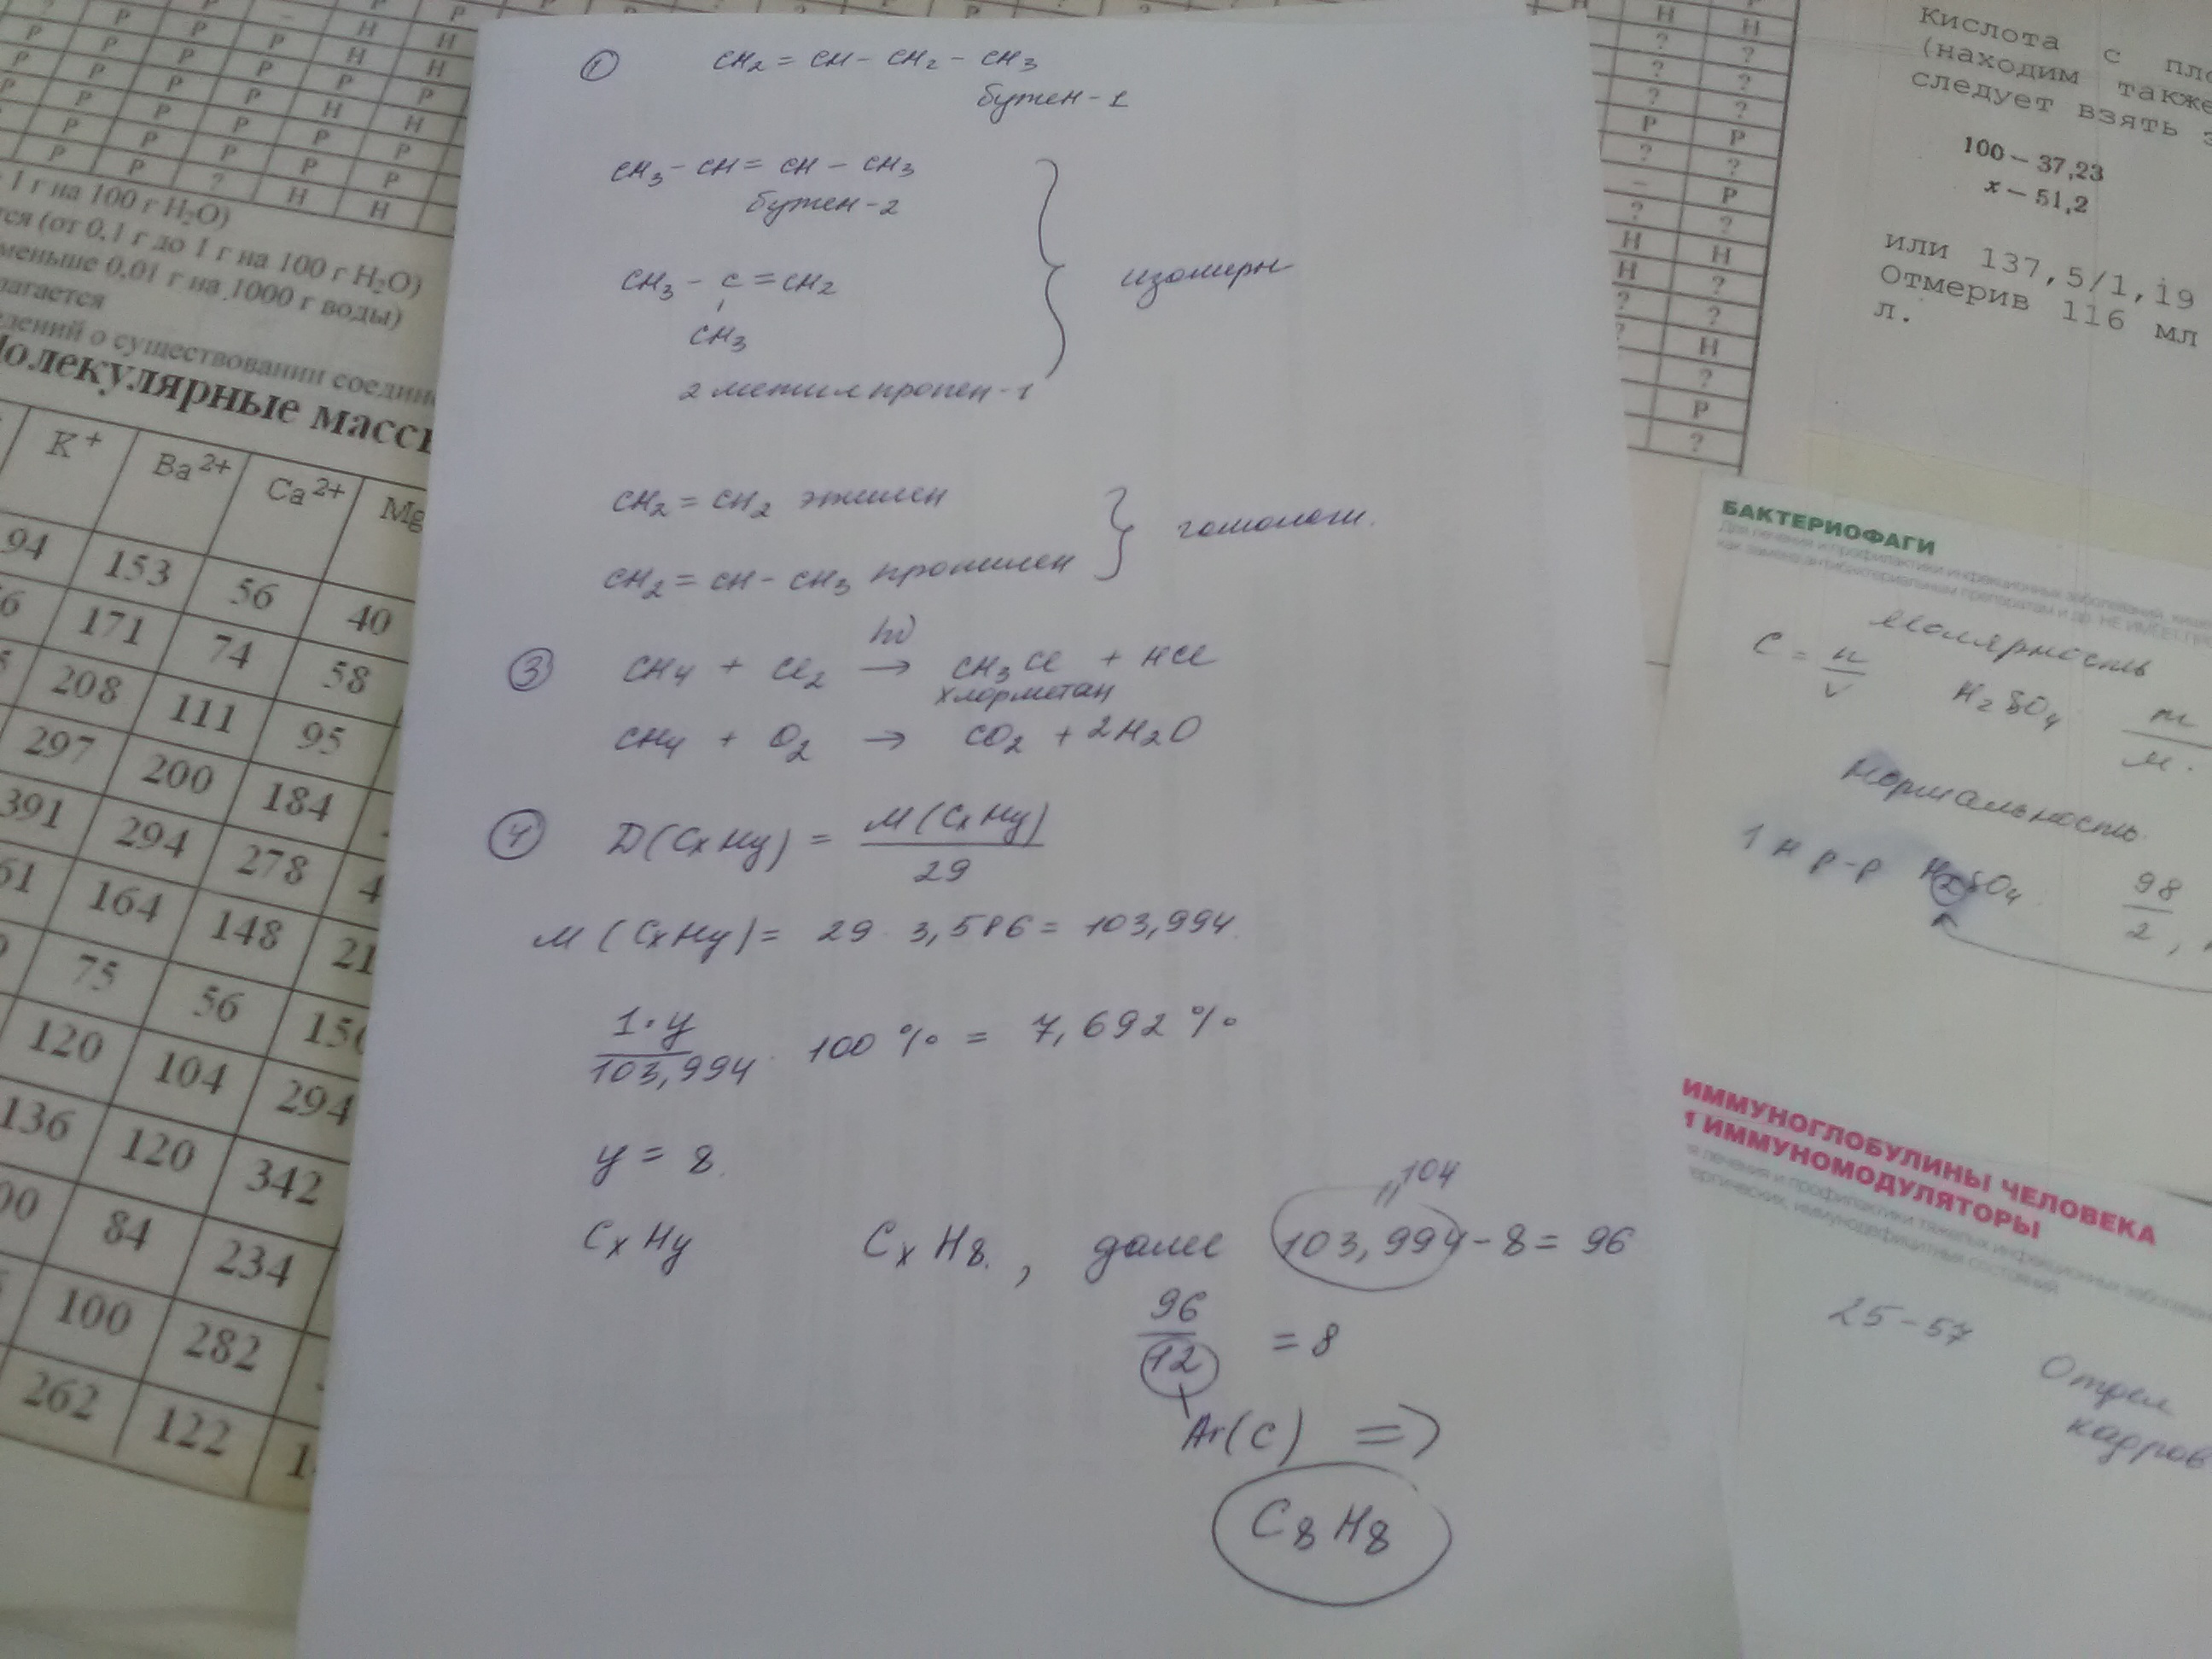 ① CH₂ = CH – CH₂ – CH₃
бутен-1
CH₃ – CH = CH – CH₃
бутен-2
CH₃ – C = CH₂
CH₃
2 метил пропен-1
изомеры
CH₂ = CH₂ этилен
CH₂ = CH – CH₃ пропилен
гомологи.
③ CH₄ + Cl₂ → CH₃Cl + HCl
hν
хлорметан
CH₄ + O₂ → CO₂ + 2H₂O
④ D(CxHy) = M(CxHy) / 29
M(CxHy) = 29 · 3,586 = 103,994.
1·y / 103,994 · 100 % = 7,692 %
y = 8.
CxHy CxH₈. , далее 103,994 – 8 = 96
104
96 / 12 = 8
Ar(C) =>
C₈H₈
1 г на 100 г H₂O)
(от 0,1 г до 1 г на 100 г H₂O)
меньше 0,01 г на 1000 г воды)
лагается
едений о существовании соедин
Молекулярные массы
K⁺ Ba²⁺ Ca²⁺ Mg
94 153 56 40
171 74 58
208 111 95
297 200 184
391 294 278 4
61 164 148 21
75 56 150
120 104 294
136 120 342
84 234
100 282
262 122 1
кислота с пло
(находим также
следует взять з
100 – 37,23
x – 51,2
или 137,5/1,19
Отмерив 116 мл
л.
БАКТЕРИОФАГИ
Для лечения и профилактики инфекционных заболеваний
как замена антибактериальным препаратам и др.
молярность
C = n / v H₂SO₄ m / м.
нормальность
1 н р-р H₂SO₄ 98 / 2 ,
ИММУНОГЛОБУЛИНЫ ЧЕЛОВЕКА
И ИММУНОМОДУЛЯТОРЫ
25-57
Отдел
кадров